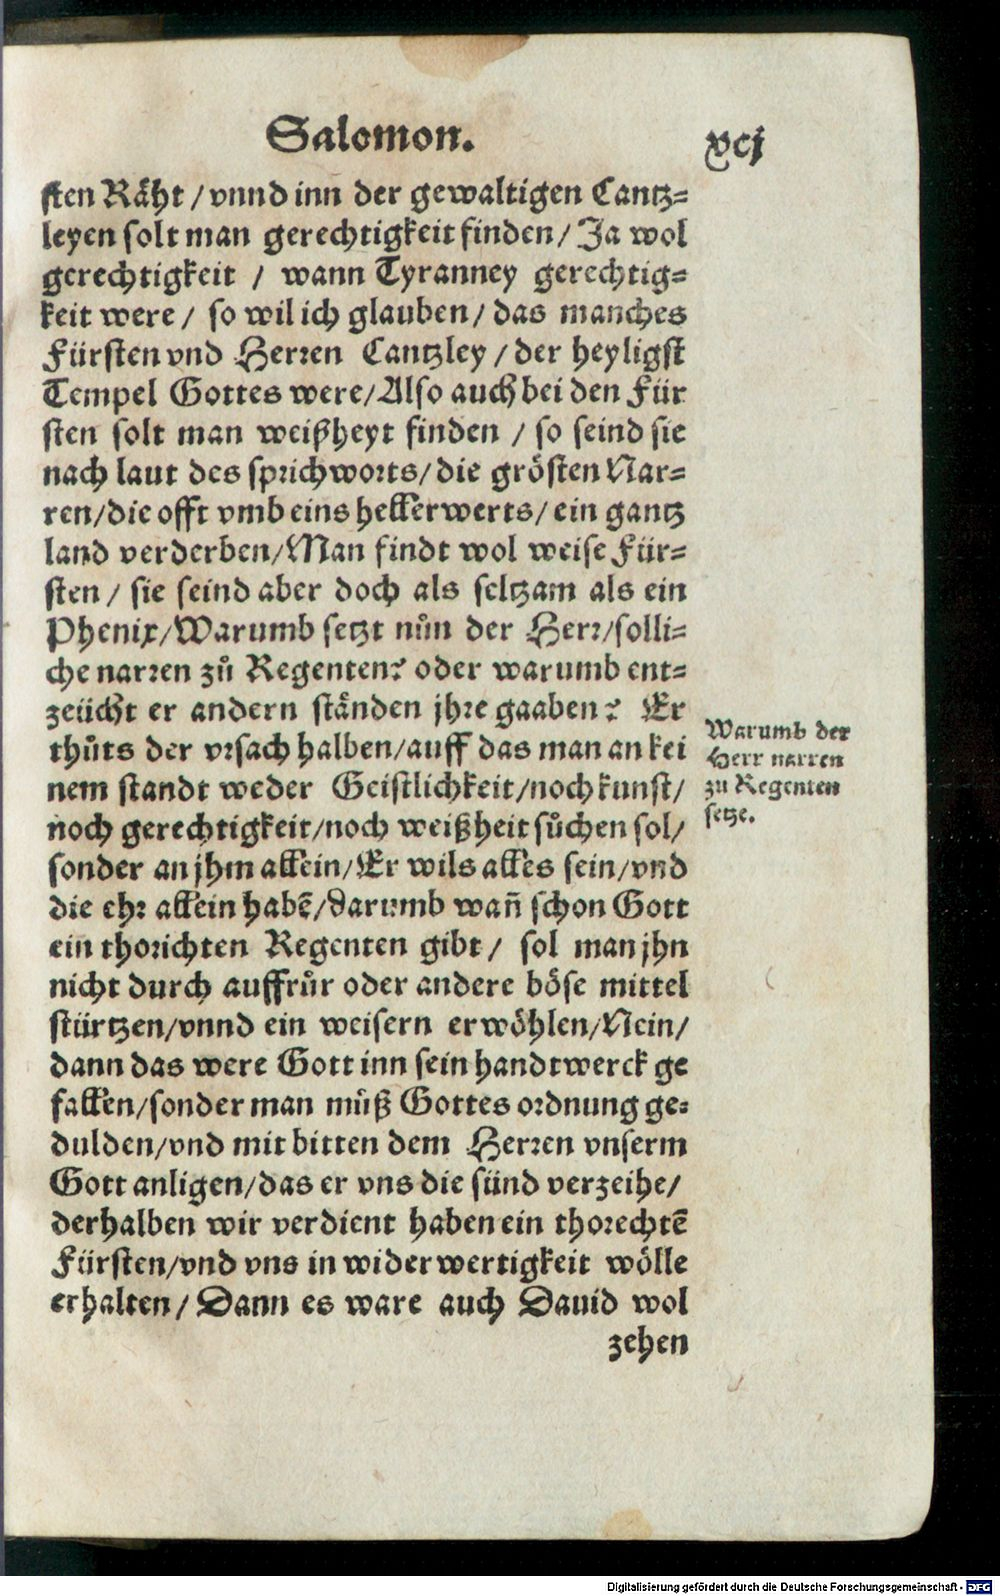 Salomon.
xcj
sten Räht / vnnd inn der gewaltigen Cantz=
leyen solt man gerechtigkeit finden / Ja wol
gerechtigkeit / wann Tyranney gerechtig=
keit were / so wil ich glauben / das manches
Fürsten vnd Herren Cantzley / der heyligst
Tempel Gottes were / Also auch bei den Für
sten solt man weißheyt finden / so seind sie
nach laut des sprichworts / die grösten Nar=
ren / die offt vmb eins hellerwerts / ein gantz
land verderben / Man findt wol weise Für=
sten / sie seind aber doch als seltzam als ein
Phenix / Warumb setzt nůn der Herr / solli=
che narren zů Regenten? oder warumb ent=
zeücht er andern ständen jhre gaaben? Er
thůts der vrsach halben / auff das man an kei
nem standt weder Geistlichkeit / noch kunst /
noch gerechtigkeit / noch weißheit sůchen sol /
sonder an jhm allein / Er wils alles sein / vnd
die ehr allein habē / darumb wañ schon Gott
ein thorichten Regenten gibt / sol man jhn
nicht durch auffrůr oder andere böse mittel
stürtzen / vnnd ein weisern erwöhlen / Nein /
dann das were Gott inn sein handtwerck ge
fallen / sonder man můß Gottes ordnung ge=
dulden / vnd mit bitten dem Herren vnserm
Gott anligen / das er vns die sünd verzeihe /
derhalben wir verdient haben ein thorechtē
Fürsten / vnd vns in widerwertigkeit wölle
erhalten / Dann es ware auch Dauid wol
zehen
Warumb der
Herr narren
zu Regenten
setze.
Digitalisierung gefördert durch die Deutsche Forschungsgemeinschaft - DFG